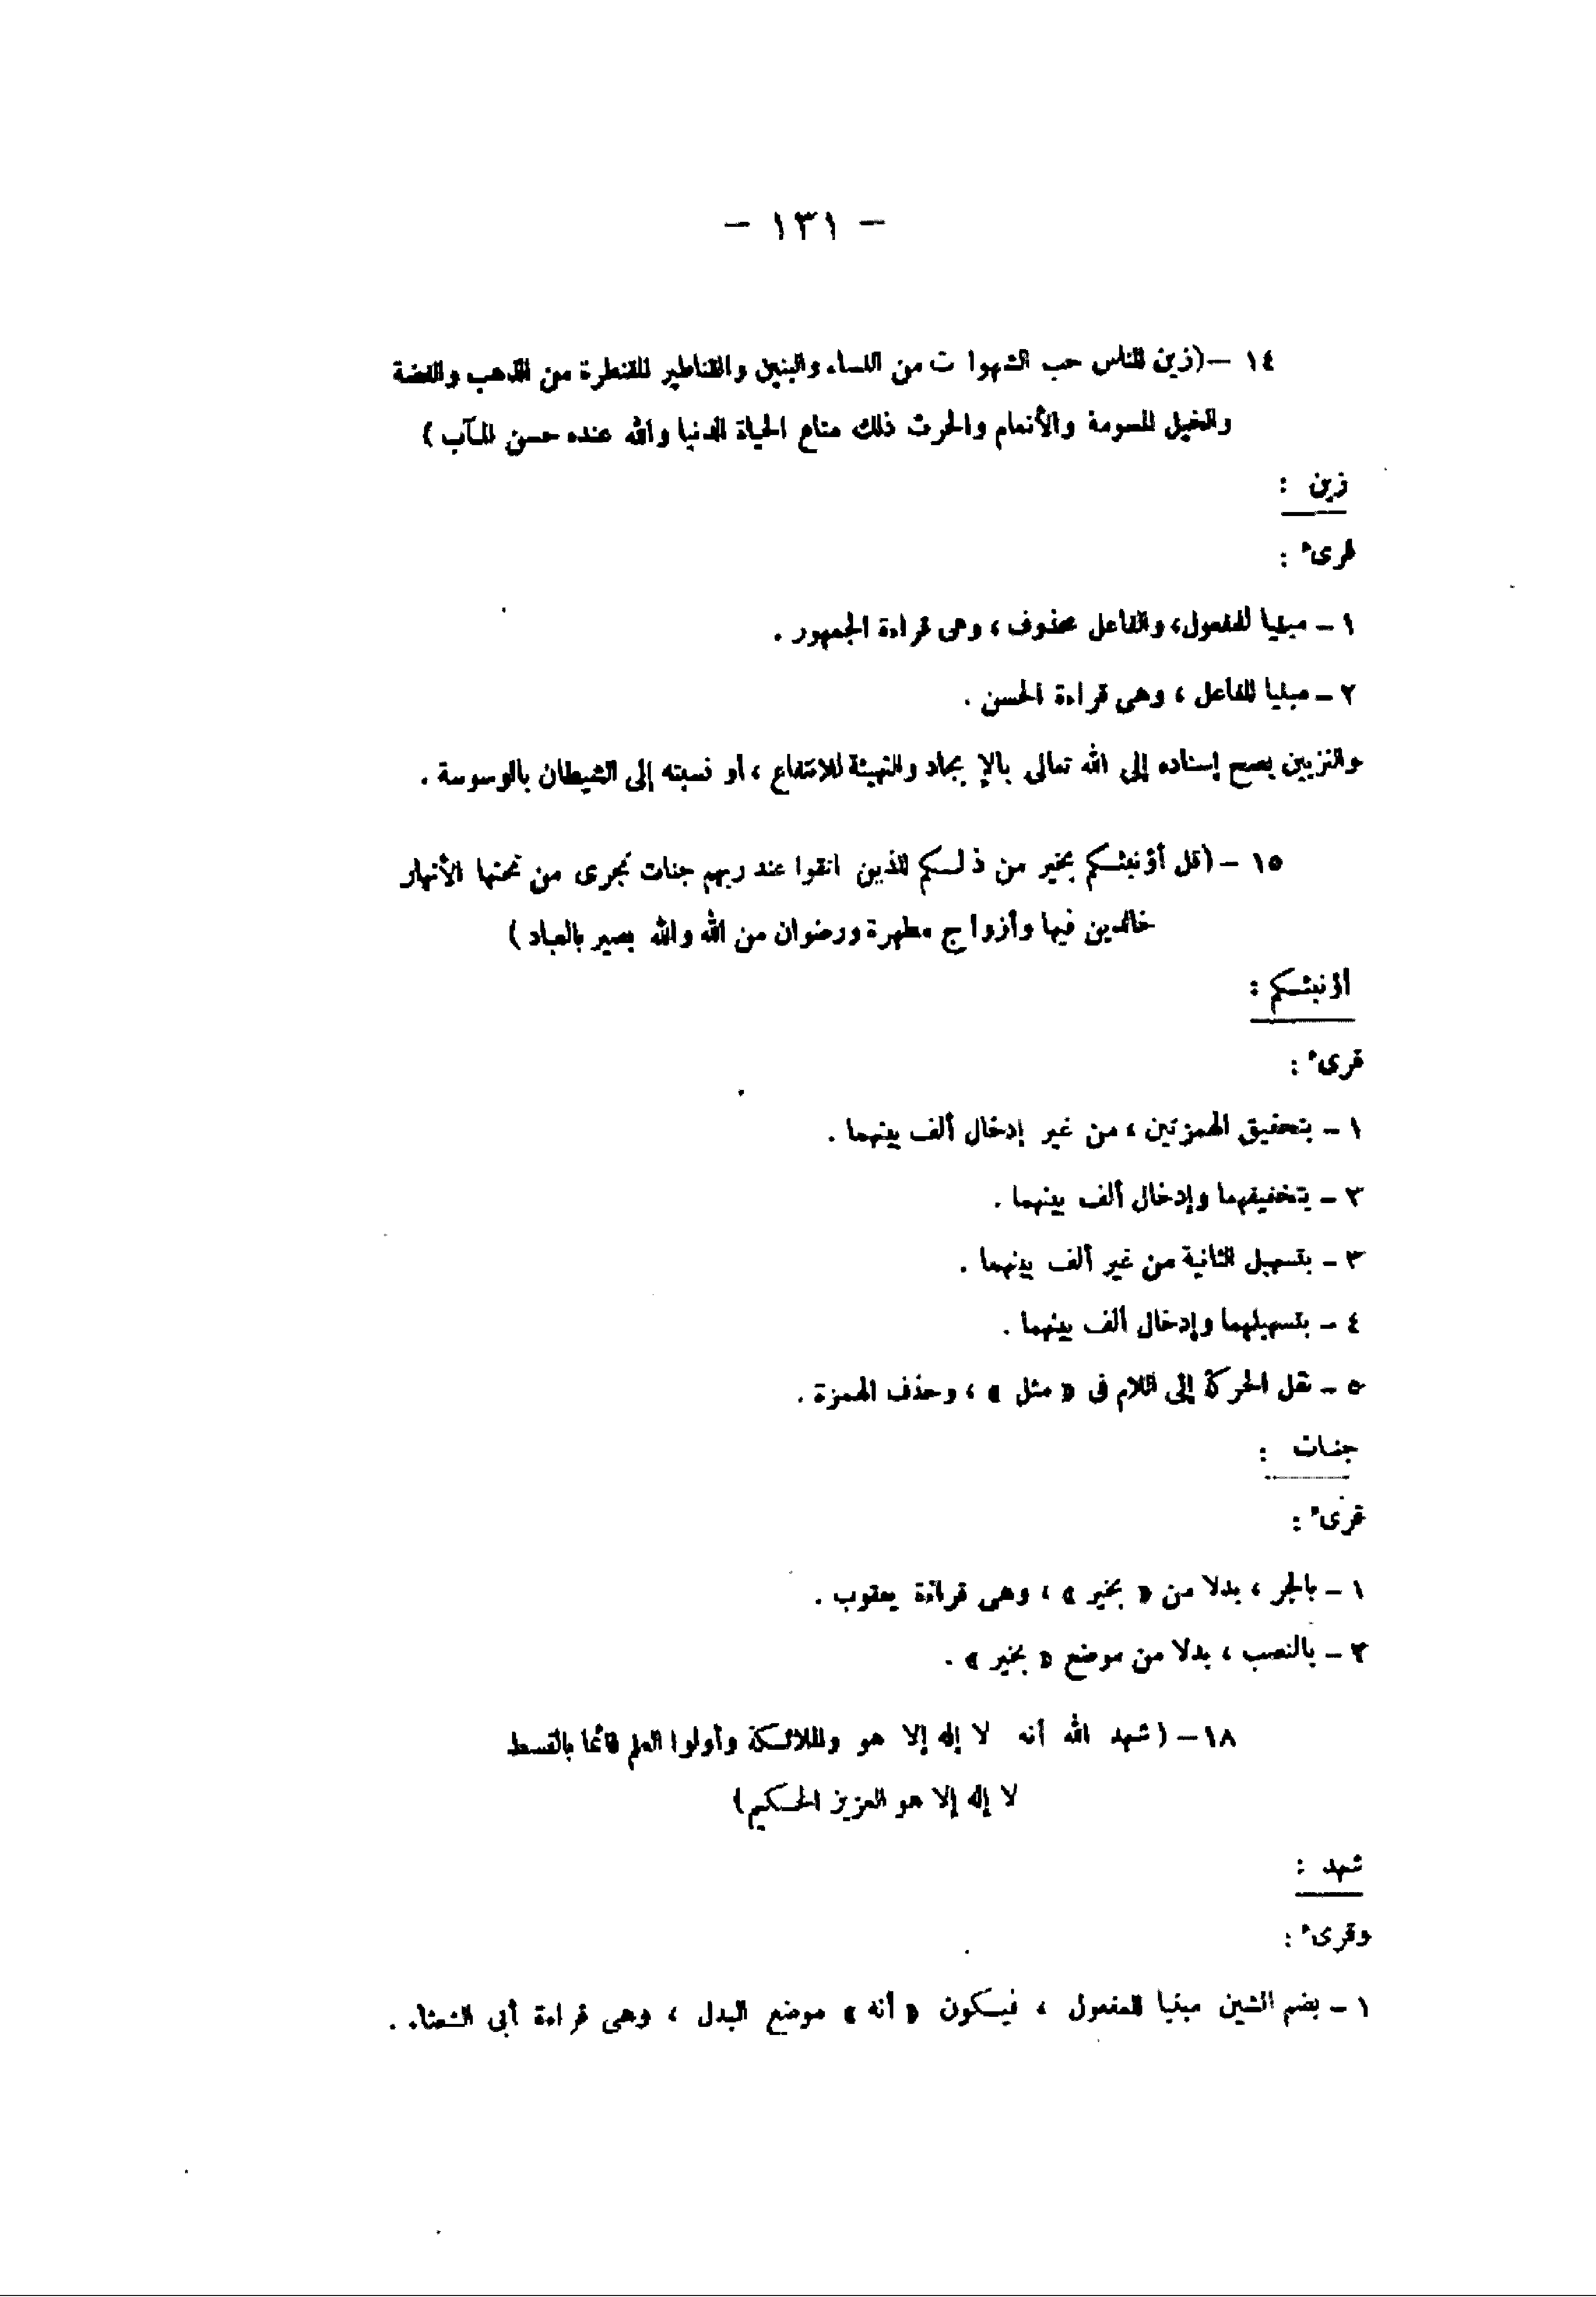 - ١٣١ -
١٤ - (زين للناس حب الشهوات من النساء والبنين والقناطير المقنطرة من الذهب والفضة
والخيل المسومة والأنعام والحرث ذلك متاع الحياة الدنيا والله عنده حسن المآب )
زين :
قرىء :
١ - مبنيا للمفعول، والفاعل محذوف ، وهى قراءة الجمهور .
٢ - مبنيا للفاعل ، وهى قراءة الحسن .
والتزيين يصح إسناده إلى الله تعالى بالإيجاد والتهيئة للانتفاع ، أو نسبته إلى الشيطان بالوسوسة .
١٥ - (قل أؤنبئكم بخير من ذلكم للذين اتقوا عند ربهم جنات تجرى من تحتها الأنهار
خالدين فيها وأزواج مطهرة ورضوان من الله والله بصير بالعباد )
أؤنبئكم :
قرىء :
١ - بتحقيق الهمزتين ، من غير إدخال ألف بينهما .
٣ - بتخفيفهما وإدخال ألف بينهما .
٣ - بتسهيل الثانية من غير ألف بينهما .
٤ - بتسهيلهما وإدخال ألف بينهما .
٥ - نقل الحركة إلى اللام فى « مثل » ، وحذف الهمزة .
جنات :
قرىء :
١ - بالجر ، بدلا من « بخير » ، وهى قراءة يعقوب .
٢ - بالنصب ، بدلا من موضع « بخير » .
١٨ - ( شهد الله أنه لا إله إلا هو والملائكة وأولوا العلم قائما بالقسط
لا إله إلا هو العزيز الحكيم )
شهد :
وقرىء :
١ - بضم الشين مبنيا للمفعول ، فيكون « أنه » موضع البدل ، وهى قراءة أبى الشعثاء .